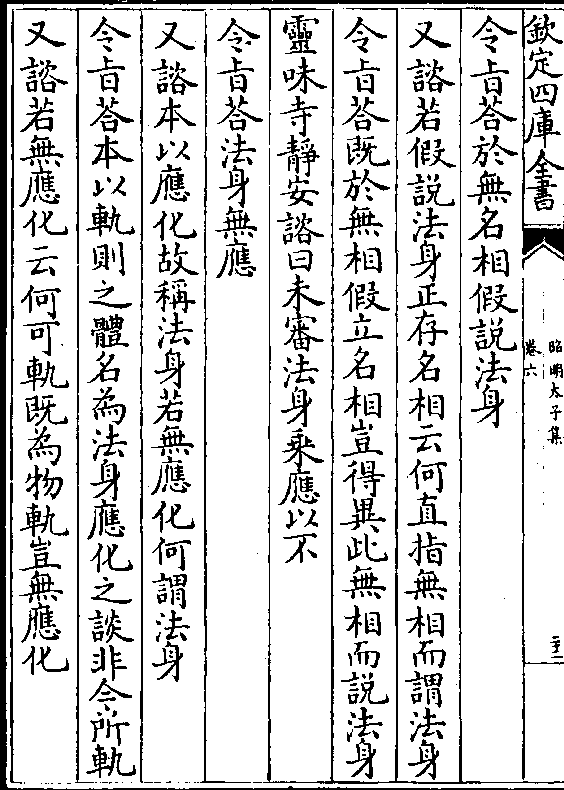 欽定四庫全書
昭明太子集
卷六
令旨荅於無名相假說法身
又諮若假說法身正存名相云何直指無相而謂法身
令旨荅既於無相假立名相豈得異此無相而說法身
靈味寺靜安諮曰未審法身乗應以不
令旨荅法身無應
又諮本以應化故稱法身若無應化何謂法身
令旨荅本以軌則之體名為法身應化之談非今所軌
又諮若無應化云何可軌既為物軌豈無應化